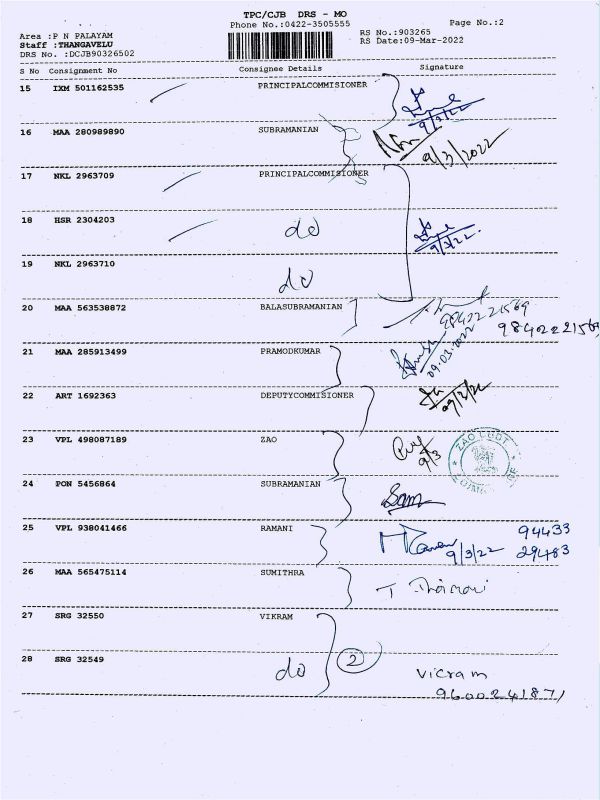 TPC/CJB DRS - MO
Phone No.:0422-3505555
Page No.:2
Area :P N PALAYAM
Staff :THANGAVELU
DRS No. :DCJB90326502
RS No.:903265
RS Date:09-Mar-2022
S No Consignment No Consignee Details Signature
15 IXM 501162535 PRINCIPALCOMMISIONER
9/3/22
16 MAA 280989890 SUBRAMANIAN
9/3/2022
17 NKL 2963709 PRINCIPALCOMMISIONER
18 HSR 2304203 do
9/3/22.
19 NKL 2963710 do
20 MAA 563538872 BALASUBRAMANIAN
9842221569
21 MAA 285913499 PRAMODKUMAR
09.03.2022
22 ART 1692363 DEPUTYCOMMISIONER
09/3/22
23 VPL 498087189 ZAO
9/3
24 PON 5456864 SUBRAMANIAN
Sam
25 VPL 938041466 RAMANI
9/3/22
94433
29483
26 MAA 565475114 SUMITHRA
27 SRG 32550 VIKRAM
28 SRG 32549 do 2
Vicram
9600241871